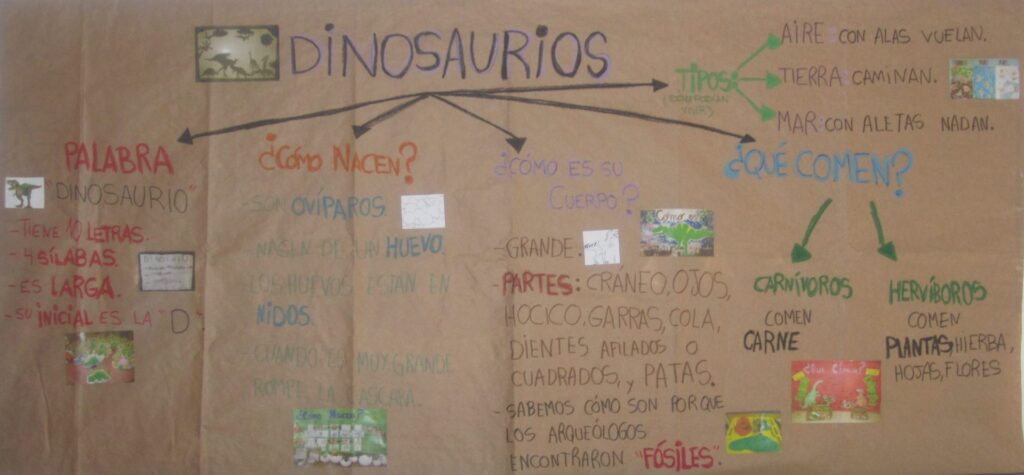 DINOSAURIOS
TIPOS:
AIRE: CON ALAS VUELAN.
TIERRA: CAMINAN.
MAR: CON ALETAS NADAN.
PALABRA
"DINOSAURIO"
- TIENE 10 LETRAS.
- 4 SÍLABAS.
- ES LARGA.
- SU INICIAL ES LA "D".
¿CÓMO NACEN?
- SON OVÍPAROS.
- NACEN DE UN HUEVO.
- LOS HUEVOS ESTÁN EN
NIDOS.
- CUANDO ES MUY GRANDE
ROMPE LA CASCARA.
¿Cómo Nacen?
¿CÓMO ES SU
CUERPO?
- GRANDE.
PARTES: CRÁNEO, OJOS,
HOCICO, GARRAS, COLA,
DIENTES AFILADOS O
CUADRADOS, y PATAS.
- SABEMOS CÓMO SON PORQUE
LOS ARQUEÓLOGOS
ENCONTRARON "FÓSILES".
¿QUÉ COMEN?
CARNÍVOROS
COMEN
CARNE
HERVÍBOROS
COMEN
PLANTAS, HIERBA,
HOJAS, FLORES
¿Qué Comen?